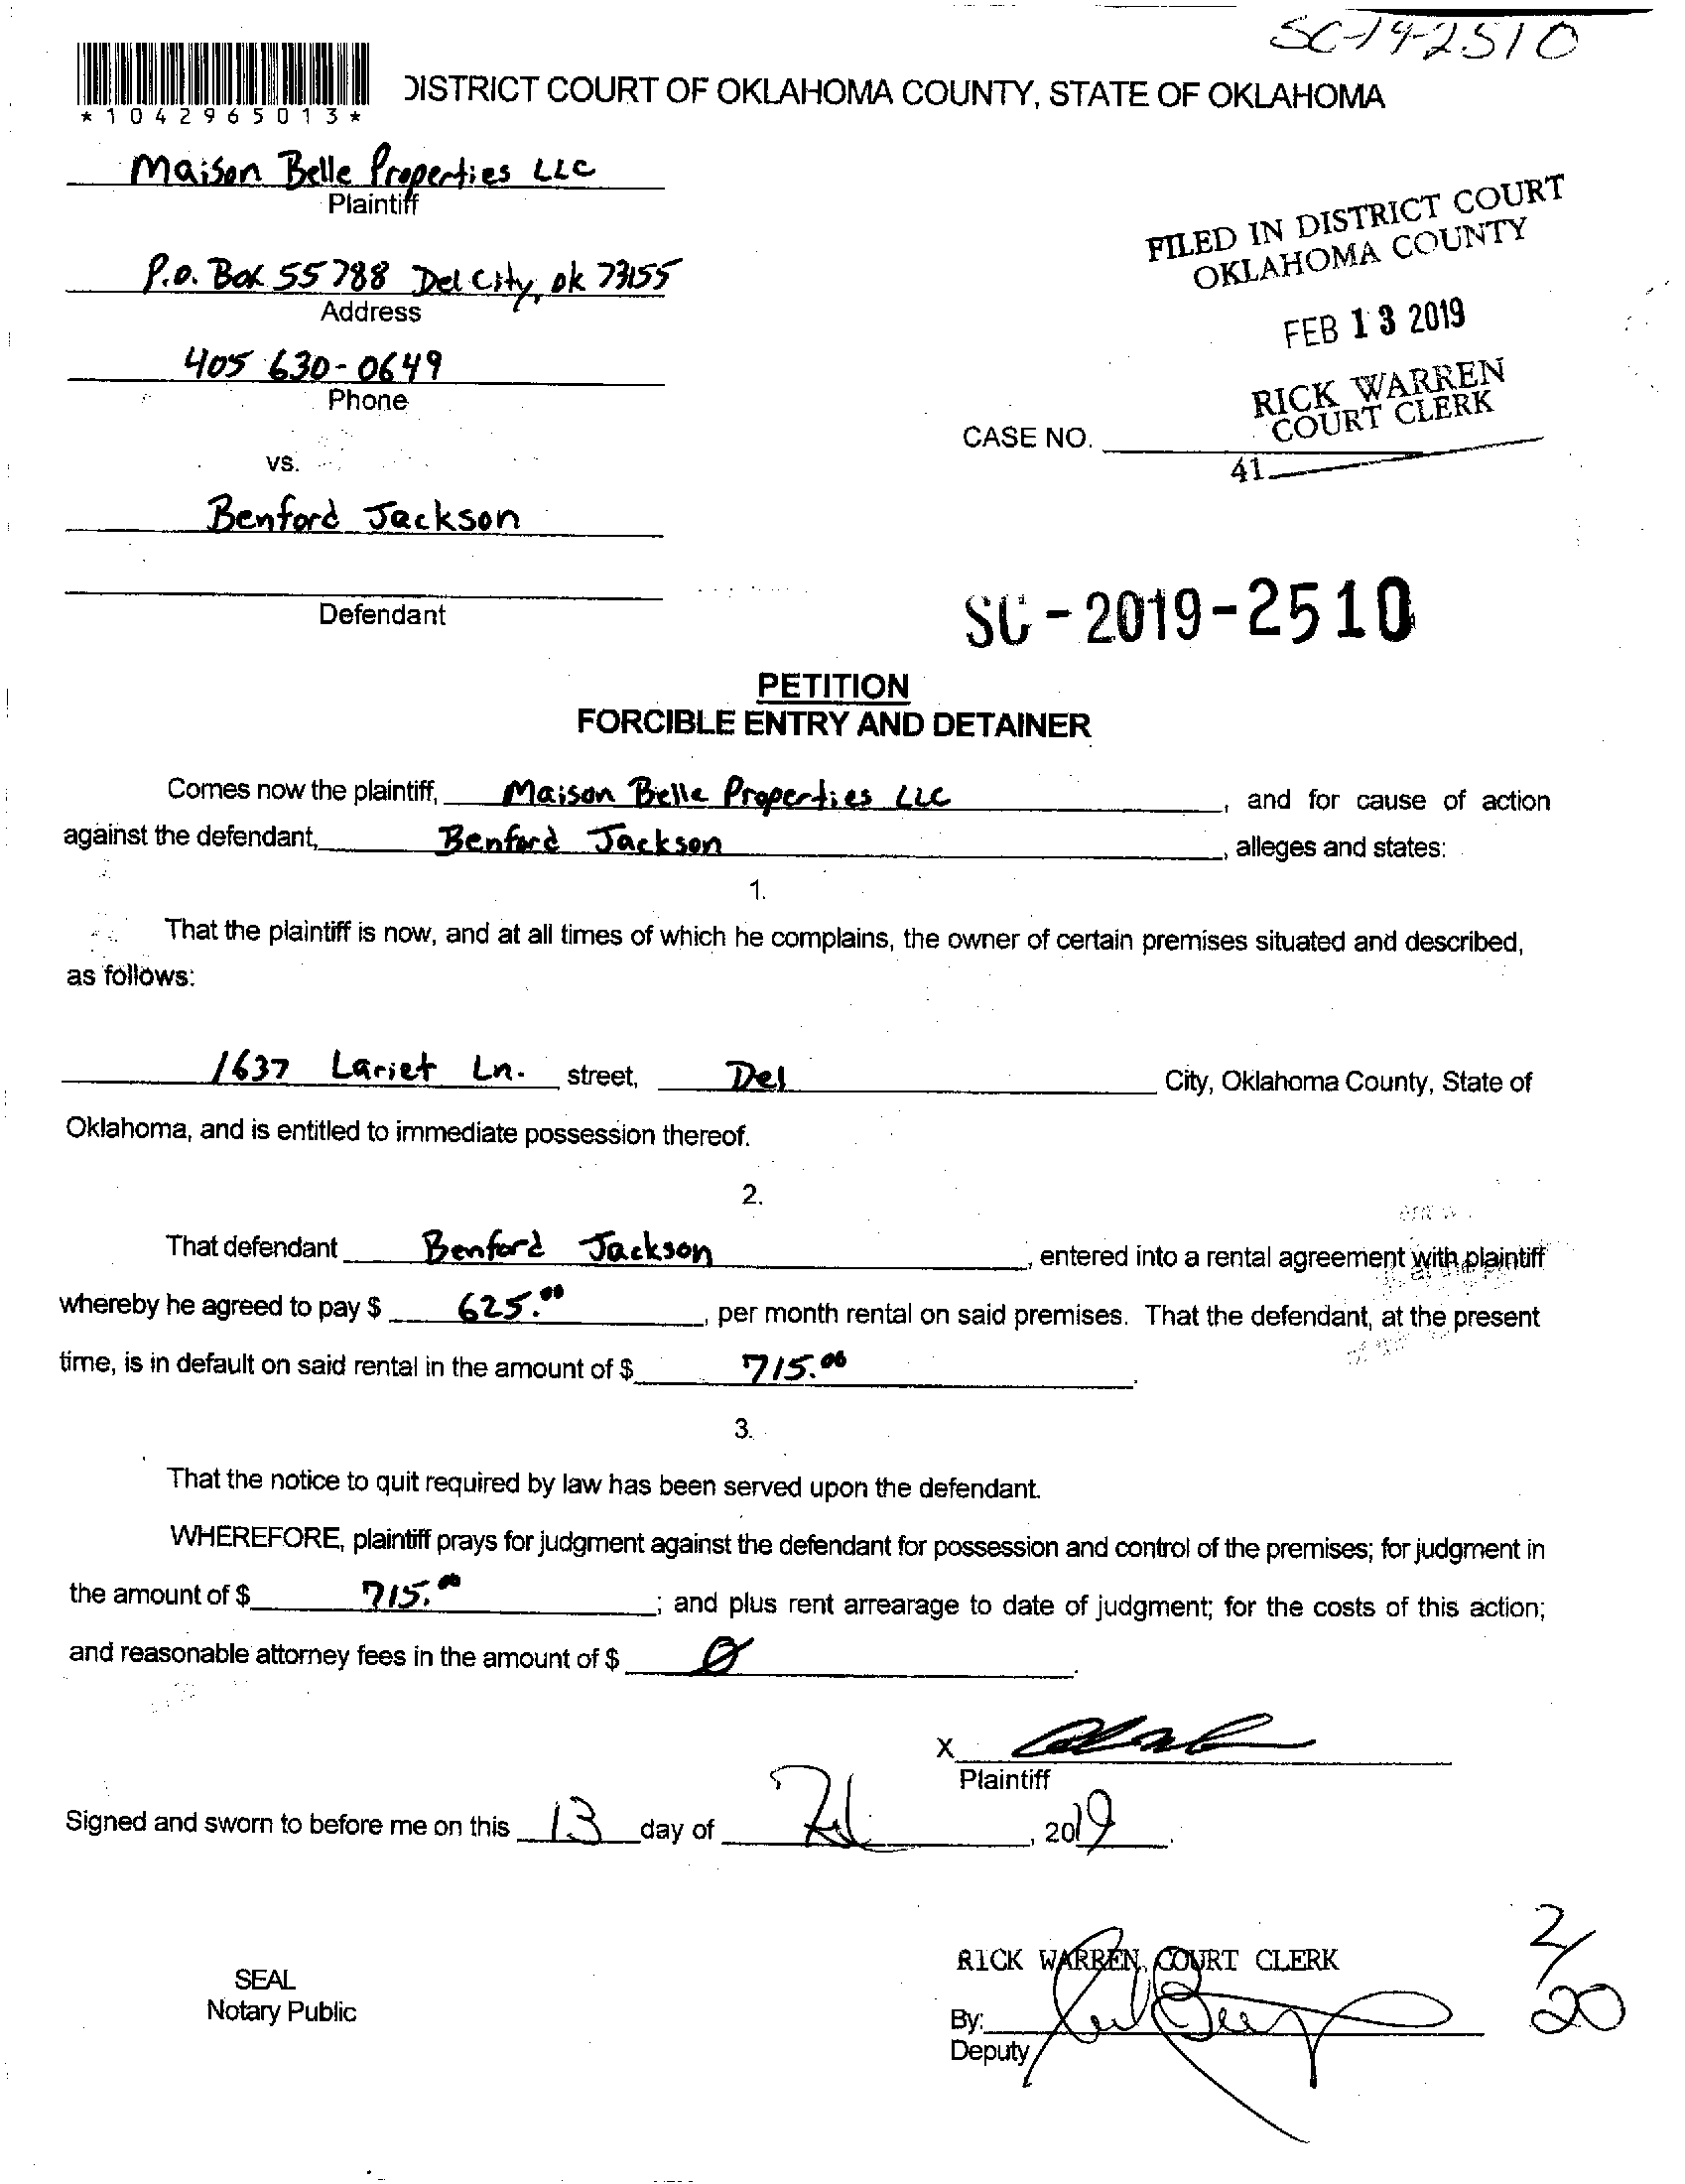 SC-19-2510
*1042965013*
DISTRICT COURT OF OKLAHOMA COUNTY, STATE OF OKLAHOMA
Maison Belle Properties LLC
Plaintiff
P.O. Box 55788 Del City, Ok 73155
Address
405 630-0649
Phone
FILED IN DISTRICT COURT
OKLAHOMA COUNTY
FEB 13 2019
RICK WARREN
COURT CLERK
CASE NO.
41
vs.
Benford Jackson
Defendant
SC-2019-2510
PETITION
FORCIBLE ENTRY AND DETAINER
Comes now the plaintiff, Maison Belle Properties LLC, and for cause of action
against the defendant, Benford Jackson, alleges and states:
1.
That the plaintiff is now, and at all times of which he complains, the owner of certain premises situated and described,
as follows:
1637 Lariet Ln. street, Del City, Oklahoma County, State of
Oklahoma, and is entitled to immediate possession thereof.
2.
That defendant Benford Jackson, entered into a rental agreement with plaintiff
whereby he agreed to pay $ 625.00, per month rental on said premises. That the defendant, at the present
time, is in default on said rental in the amount of $ 715.00.
3.
That the notice to quit required by law has been served upon the defendant.
WHEREFORE, plaintiff prays for judgment against the defendant for possession and control of the premises; for judgment in
the amount of $ 715.00; and plus rent arrearage to date of judgment; for the costs of this action;
and reasonable attorney fees in the amount of $ Ø.
X
Plaintiff
Signed and sworn to before me on this 13 day of Feb, 2019.
SEAL
Notary Public
RICK WARREN, COURT CLERK
By:
Deputy
2/20